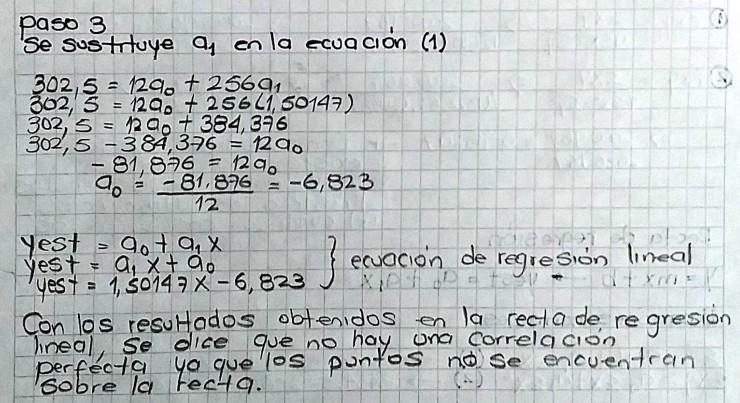 paso 3
Se sustituye a₁ en la ecuación (1)
302,5 = 12a₀ + 256a₁
302,5 = 12a₀ + 256(1,50147)
302,5 = 12a₀ + 384,376
302,5 - 384,376 = 12a₀
-81,876 = 12a₀
a₀ = -81.876 / 12 = -6,823
yest = a₀ + a₁ x
yest = a₁ x + a₀ } ecuación de regresión lineal
yest = 1,50147x - 6,823
Con los resultados obtenidos en la recta de regresión
lineal, se dice que no hay una correlación
perfecta ya que los puntos no se encuentran
sobre la recta.